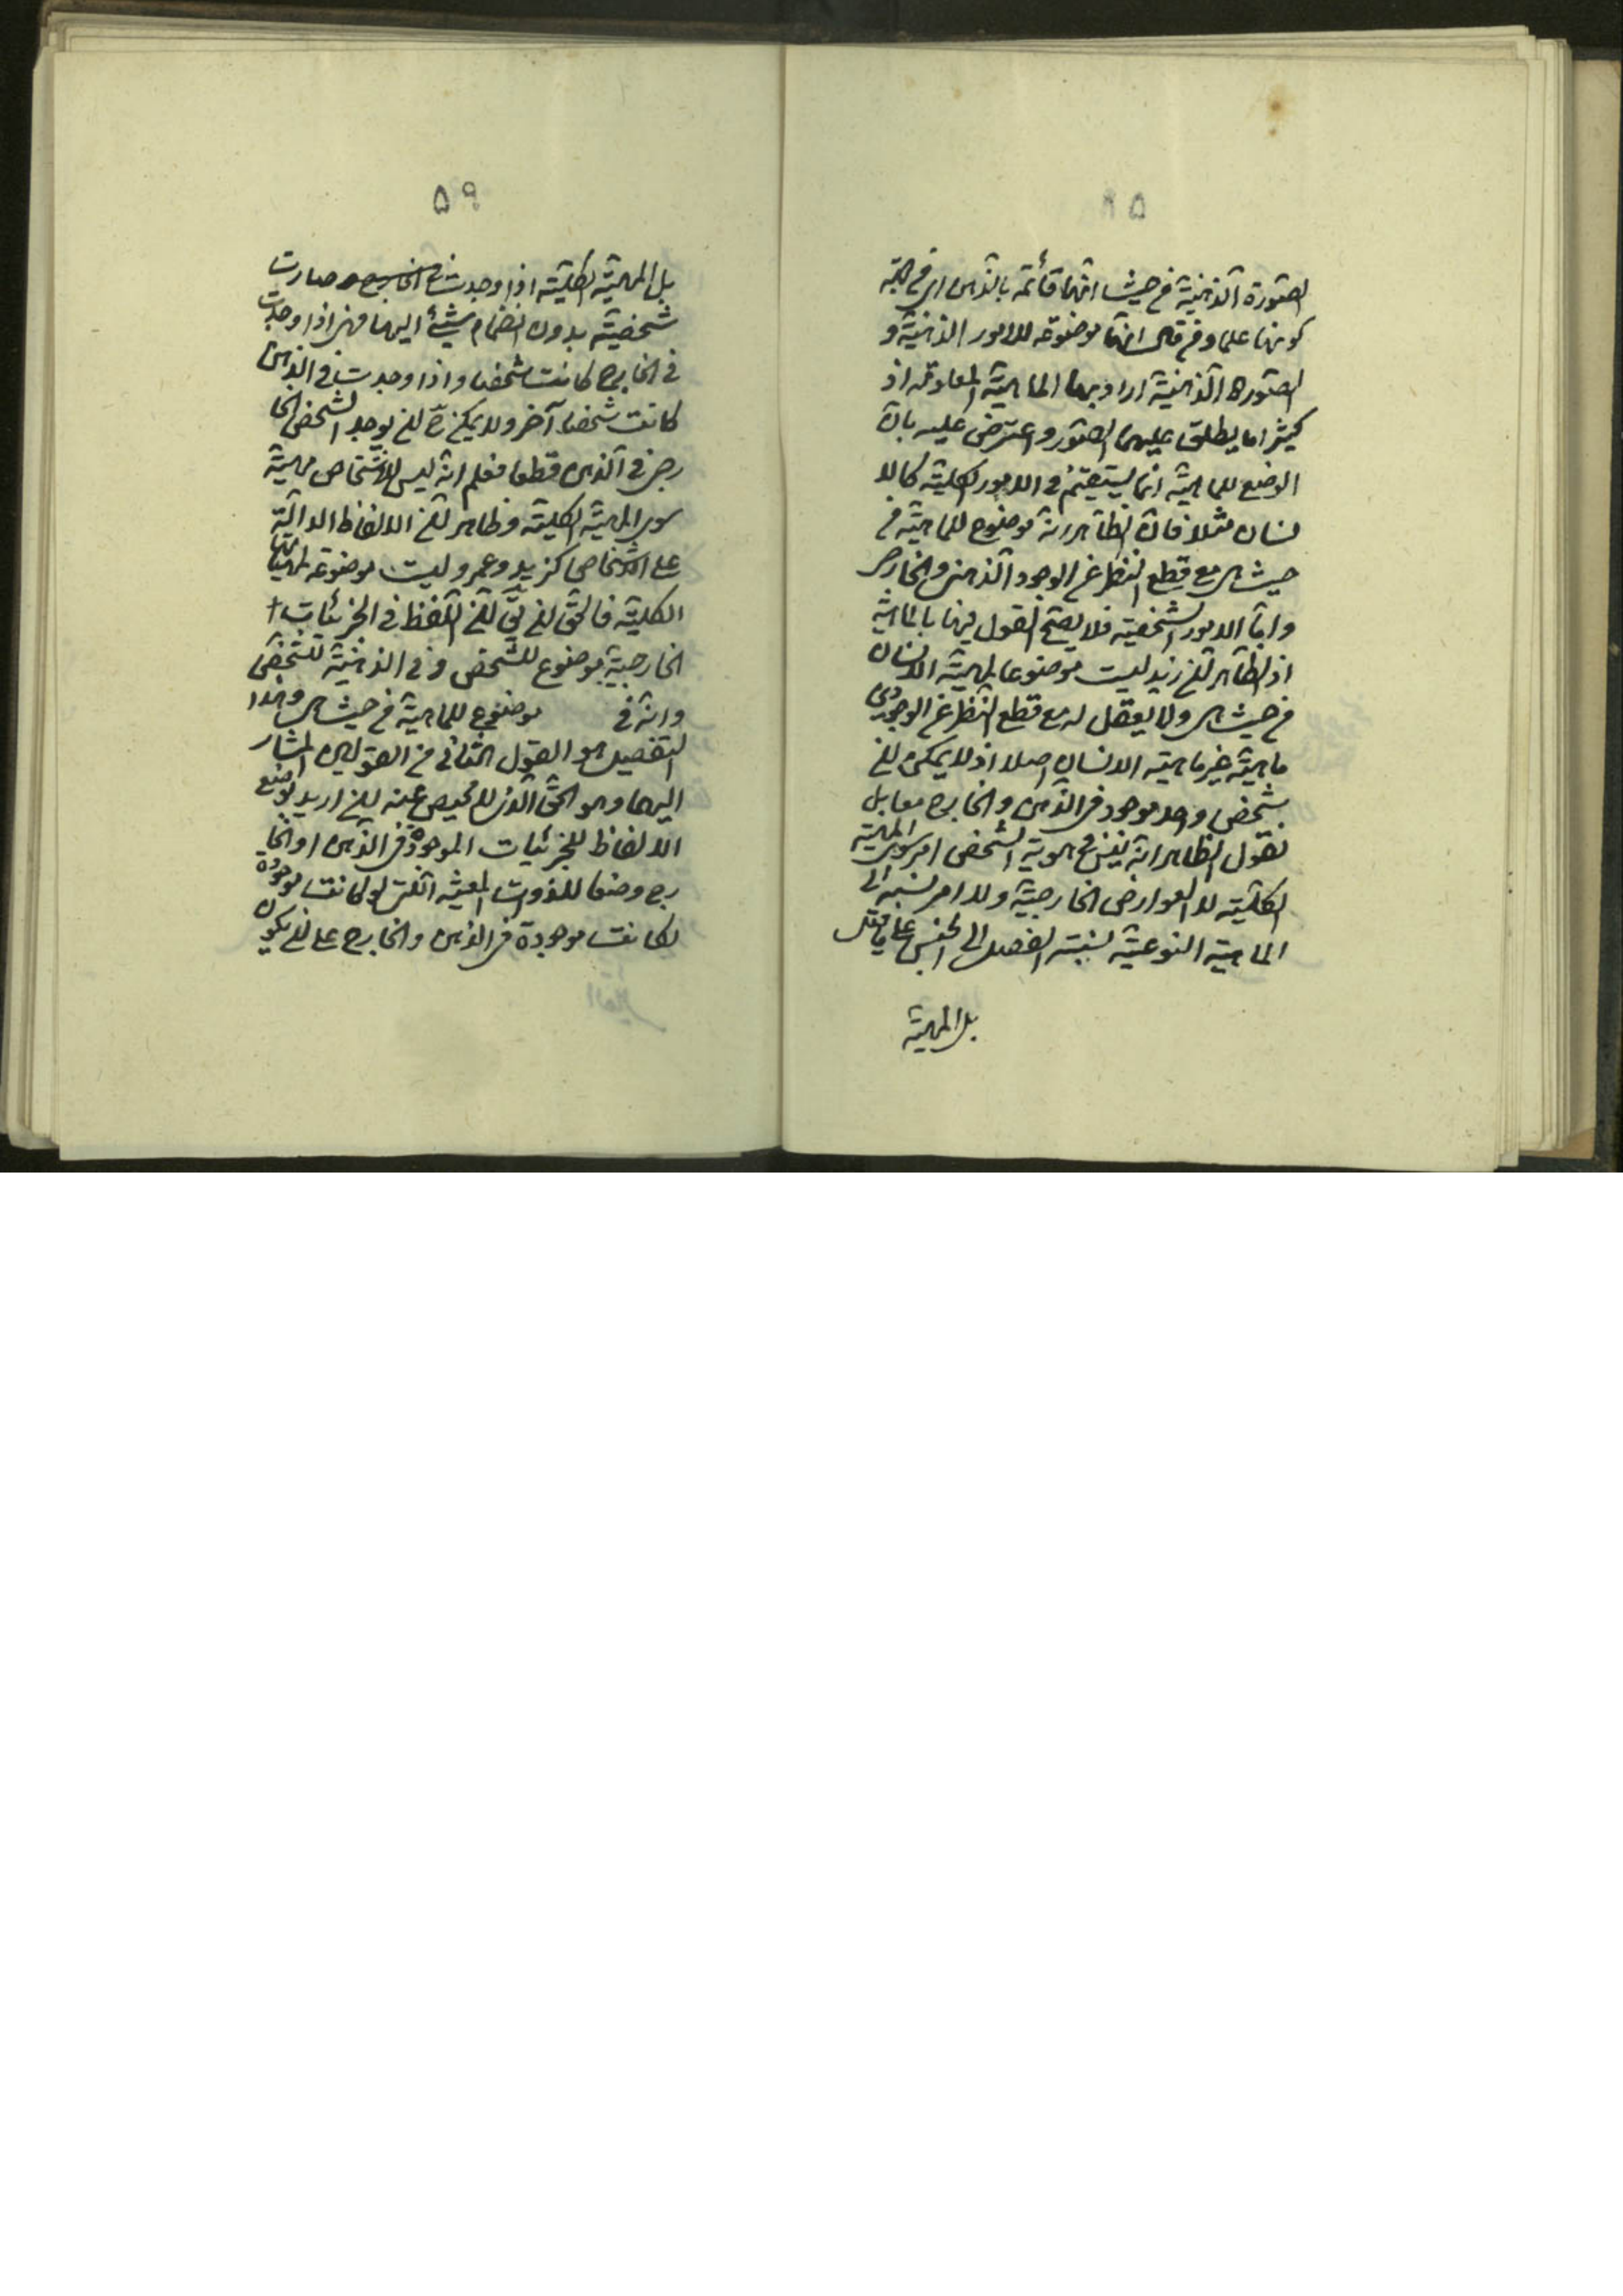 ٥٨
الصّورة الذّهنيّة من حيث انّها قائمة بالذّهن اى من جهة
كونها علما و من قال انّها موضوعة للامور الذهنيّة و
الصّورة الذّهنيّة اراد بها الماهيّة المعلومة اذ
كثيرا ما يطلق عليها الصّور و اعترض عليه بانّ
الوضع للماهيّة انّما يستقيم فى الامور الكليّة كالا
نسان مثلا فانّ الظّاهر انّه موضوع للماهيّة من
حيث هى مع قطع النّظر عن الوجود الذّهنى و الخارجى
و امّا الامور الشّخصيّة فلا يصحّ القول فيها بالماهيّة
اذ الظّاهر انّ زيد ليست موضوعا لمهيّة الانسان
من حيث هى و لا يعقل له مع قطع النّظر عن الوجودين
ماهيّة غير ماهيّة الانسان اصلا اذ لا يمكن ان
شخص واحد موجود فى الذّهن و الخارج معا بل
نقول الظاهر انّه ليس فى هوية الشّخص امر سوى المهيّة
الكليّة لا العوارض الخارجيّة و لا امر نسبته الى
الماهيّة النوعيّة نسبة الفصل الى الجنس على ما قيل
بل المهيّة
٥٩
بل المهيّة الكليّة اذا وجدت فى الخارج صارت
شخصيّة بدون انضمام شيئ اليها فهى اذا وجدت
فى الخارج كانت شخصا و اذا وجدت فى الذهن
كانت شخصا آخر و لا يمكن ح ان يوجد الشخص الخا
رجى فى الذّهن قطعا فعلم انّه ليس للاشخاص مهيّة
سوى المهيّة الكليّة و ظاهر انّ الالفاظ الدالّة
على الاشخاص كزيد و عمرو ليست موضوعة لمهيّاتها
الكليّة فالحقّ ان يقّ انّ اللّفظ فى الجزئيات
الخارجيّة موضوع للشّخص و فى الذهنيّة للشخص
و انّه فى موضوع للماهيّة من حيث هى و هذا
التّفصيل هو القول الثّانى من القولين المشار
اليهما و هو الحقّ الّذى لا محيص عنه ان اريد بوضع
الالفاظ للجزئيات الموجودة فى الذّهن او الخا
رج وضعها للذوات المعيّنة الّتى لو كانت موجودة
لكانت موجودة فى الذهن و الخارج على ان يكون